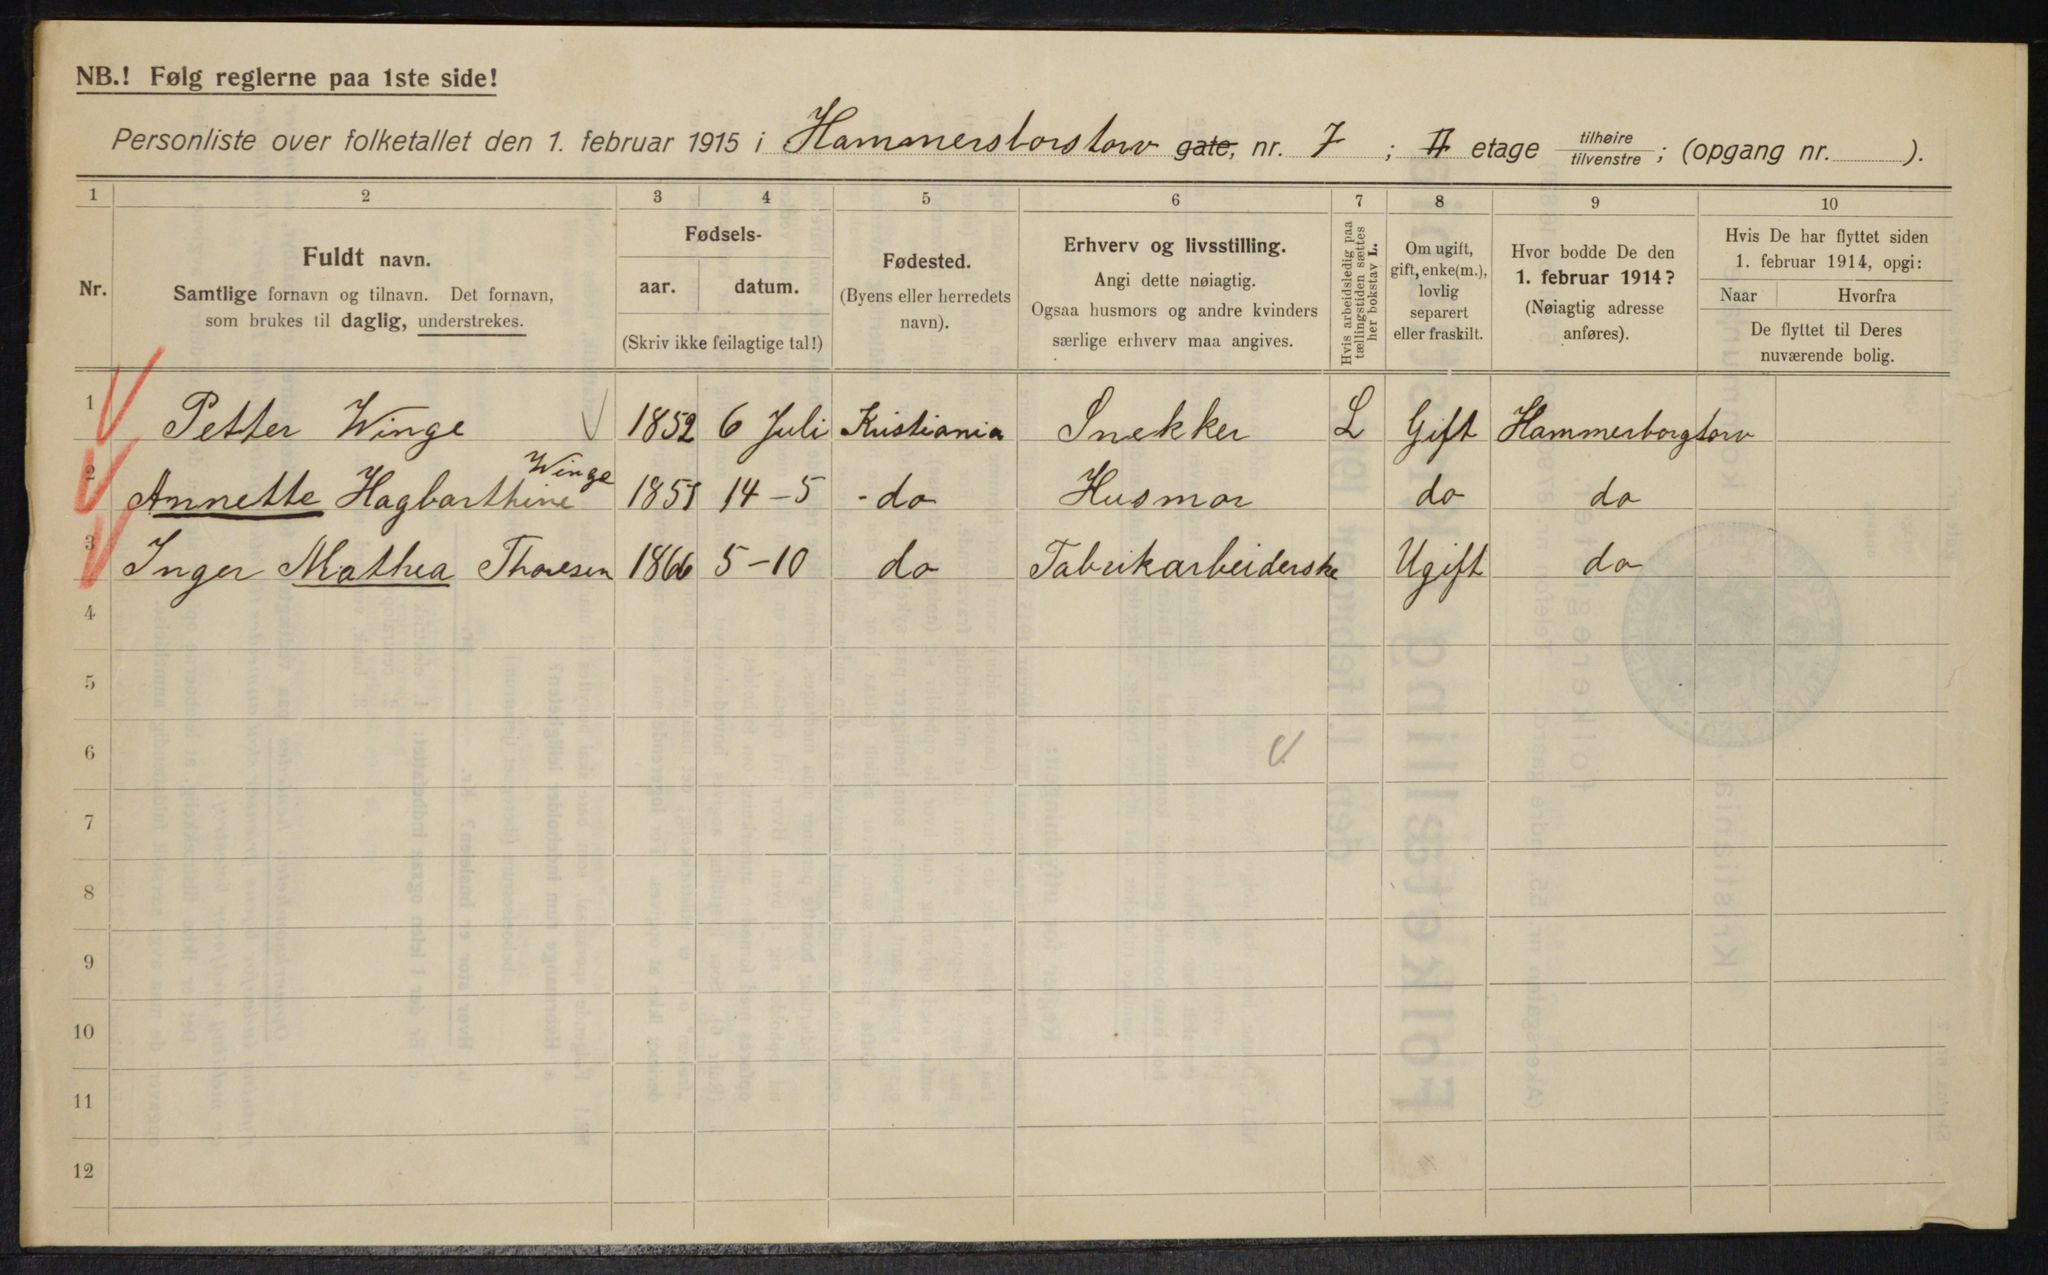 NB.! Følg reglerne paa 1ste side!
Personliste over folketallet den 1. februar 1915 i Hammersborstorv gate, nr. 7 ; II etage tilhøire tilvenstre ; (opgang nr. ).
1 2 3 4 5 6 7 8 9 10
Nr.
Fuldt navn.
Samtlige fornavn og tilnavn. Det fornavn,
som brukes til daglig, understrekes.
Fødsels-
aar. datum.
(Skriv ikke feilagtige tal!)
Fødested.
(Byens eller herredets
navn).
Erhverv og livsstilling.
Angi dette nøiagtig.
Ogsaa husmors og andre kvinders
særlige erhverv maa angives.
Hvis arbeidsledig paa
tællingstiden sættes
her bokstav L.
Om ugift,
gift, enke(m.),
lovlig
separert
eller fraskilt.
Hvor bodde De den
1. februar 1914?
(Nøiagtig adresse
anføres).
Hvis De har flyttet siden
1. februar 1914, opgi:
Naar Hvorfra
De flyttet til Deres
nuværende bolig.
1 Petter Winge 1852 6 Juli Kristiania Snekker L Gift Hammerborgtorv
2 Annette Hagbarthine Winge 1851 14-5 do Husmor do do
3 Inger Mathea Thoresen 1866 5-10 do Fabrikarbeiderske Ugift do
4
5
6
7
8
9
10
11
12